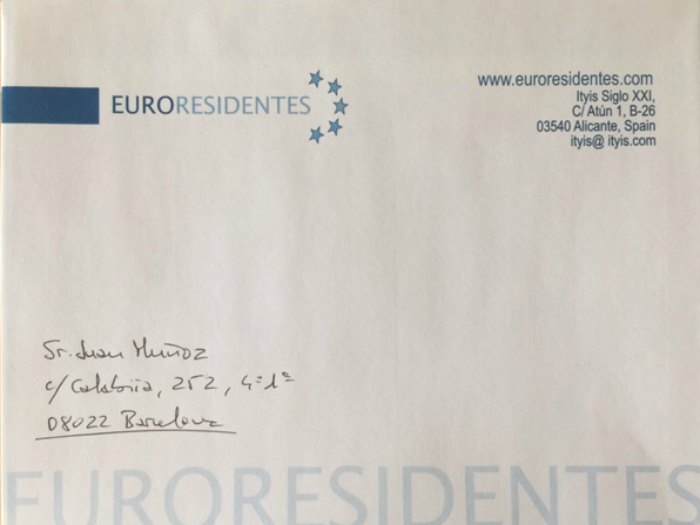 EURORESIDENTES
www.euroresidentes.com
Ityis Siglo XXI,
C/ Atún 1, B-26
03540 Alicante, Spain
ityis@ ityis.com
Sr. Juan Muñoz
c/ Calabria, 252, 4º 1ª
08022 Barcelona
EURORESIDENTES